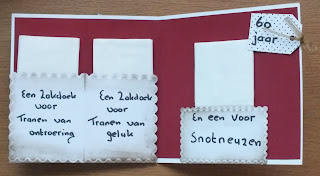 Een Zakdoek
voor
Tranen van
ontroering
Een Zakdoek
voor
Tranen van
geluk
En een voor
Snotneuzen
60
jaar